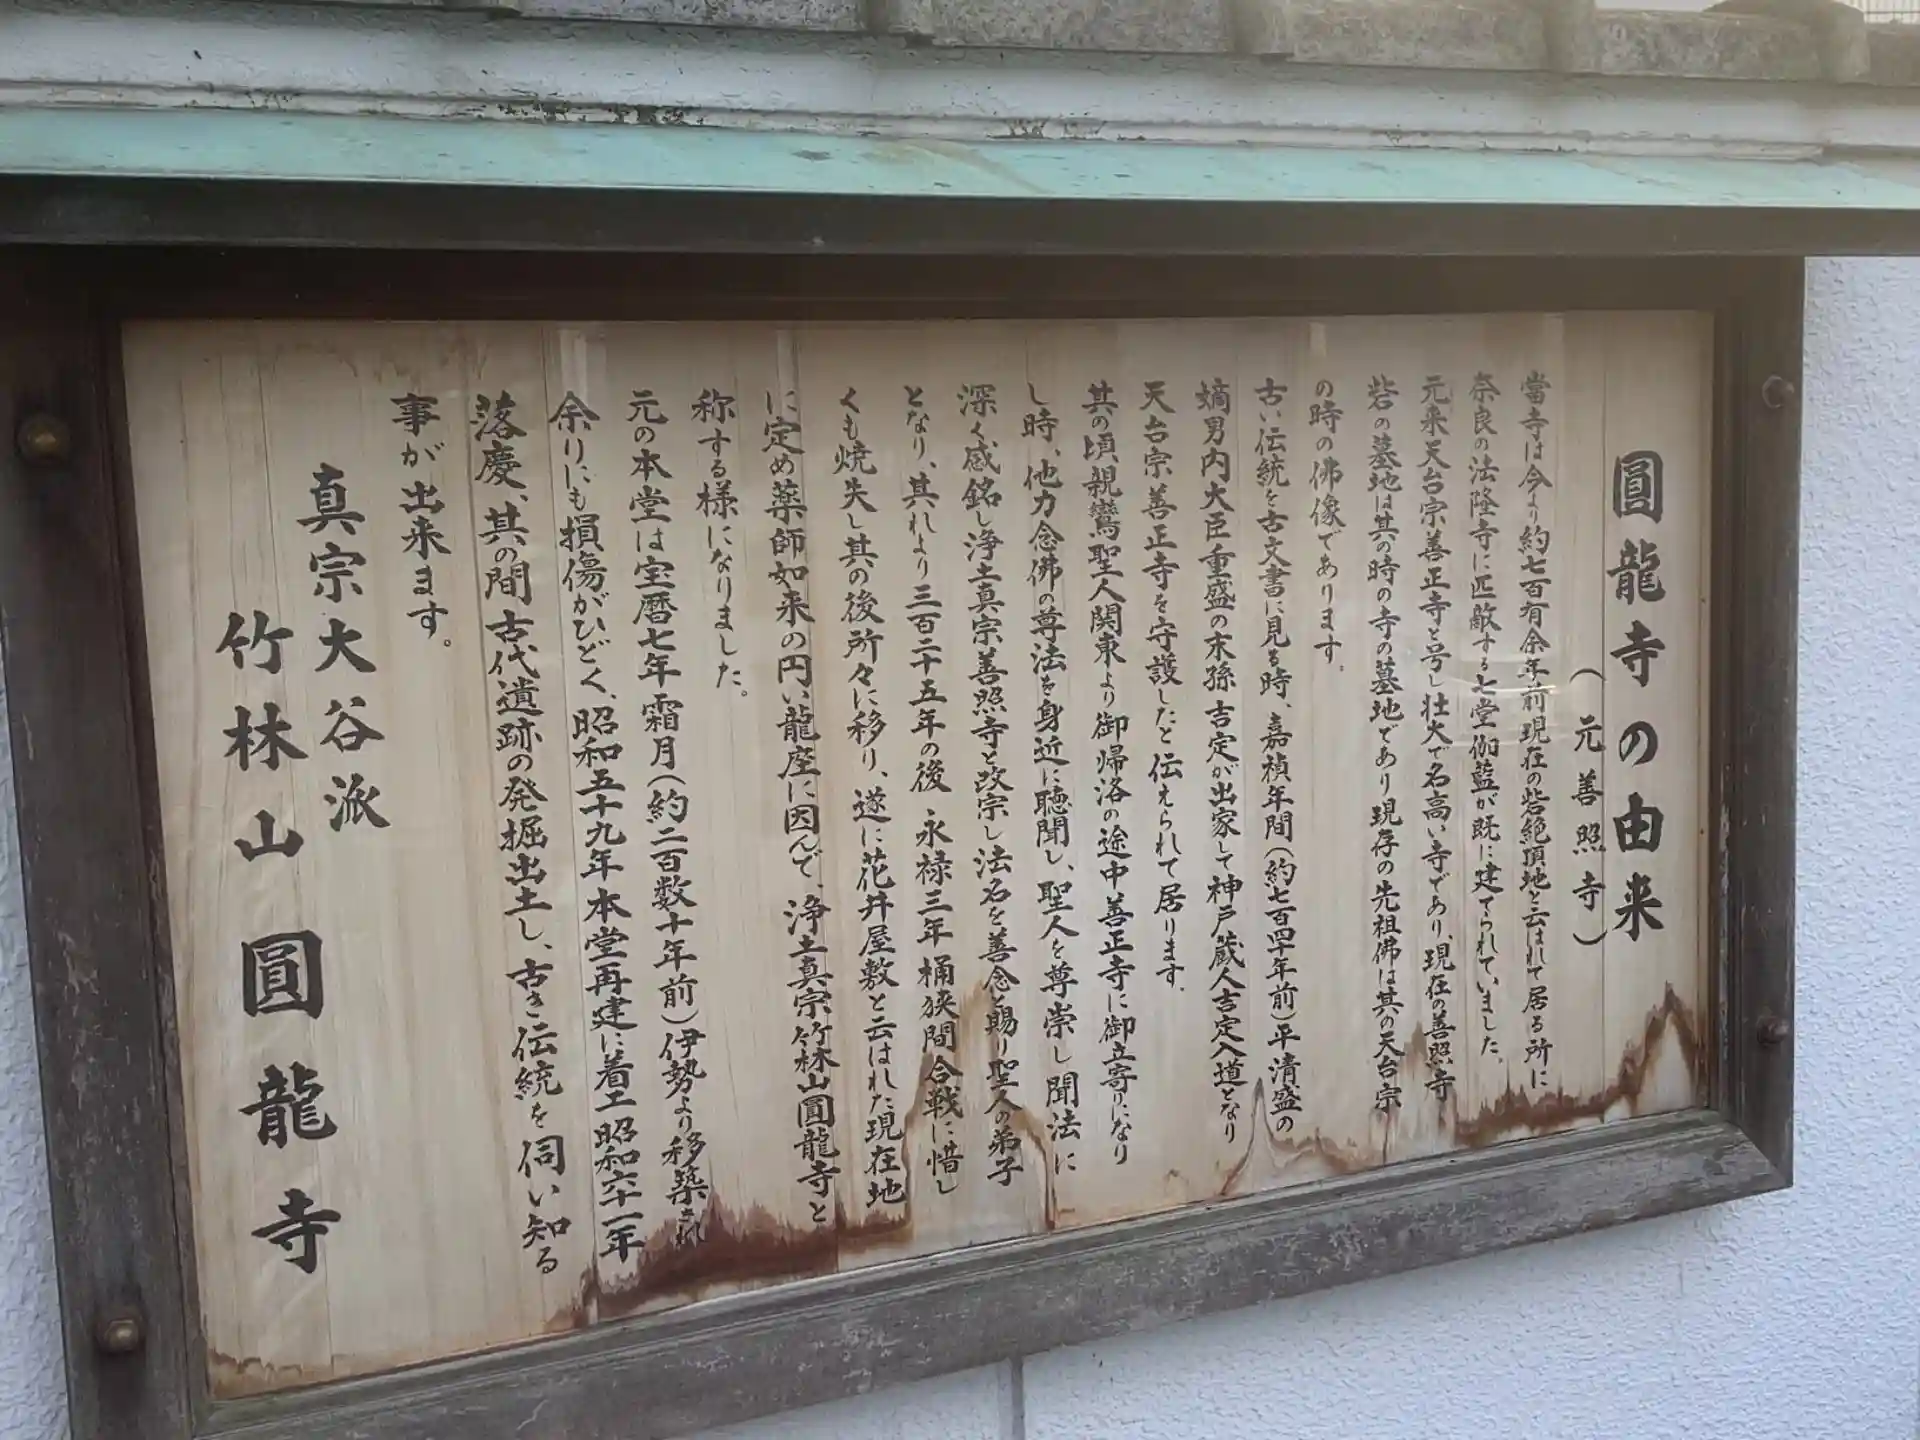 圓龍寺の由来
（元善照寺）
當寺は今より約七百有余年前現在の砦絶頂地と云はれて居る所に
奈良の法隆寺に匹敵する七堂伽藍が既に建てられていました。
元来天台宗善正寺と号し壮大で名高い寺であり、現在の善照寺
砦の墓地は其の時の寺の墓地であり現存の先祖佛は其の天台宗
の時の佛像であります。
古い伝統を古文書に見る時、嘉禎年間（約七百四十年前）平清盛の
嫡男内大臣重盛の末孫吉定が出家して神戸蔵人吉定入道となり
天台宗善正寺を守護したと伝えられて居ります。
其の頃親鸞聖人関東より御帰洛の途中善正寺に御立寄りになり
し時、他力念佛の尊法を身近に聴聞し、聖人を尊崇し聞法に
深く感銘し浄土真宗善照寺と改宗し法名を善念と賜り聖人の弟子
となり、其れより三百二十五年の後 永禄三年桶狭間合戦に惜し
くも焼失し其の後所々に移り、遂に花井屋敷と云はれた現在地
に定め薬師如来の円い龍座に因んで、浄土真宗竹林山圓龍寺と
称する様になりました。
元の本堂は宝暦七年霜月（約二百数十年前）伊勢より移築され
余りにも損傷がひどく、昭和五十九年本堂再建に着工昭和六十一年
落慶、其の間古代遺跡の発掘出土し、古き伝統を伺い知る
事が出来ます。
真宗大谷派
竹林山圓龍寺